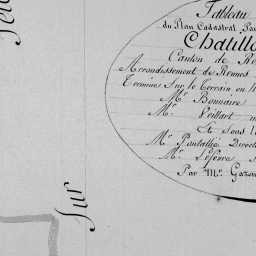 Tableau
du Plan Cadastral Par
Chatillo
Canton de Re
Arrondissement de Rennes
Terminé Sur le Terrain en
Mr. Bonnaire
Mr.
Et Sous l
Mr. Directe
Mr. Lefevre
Par Mr. Gazon
Sur